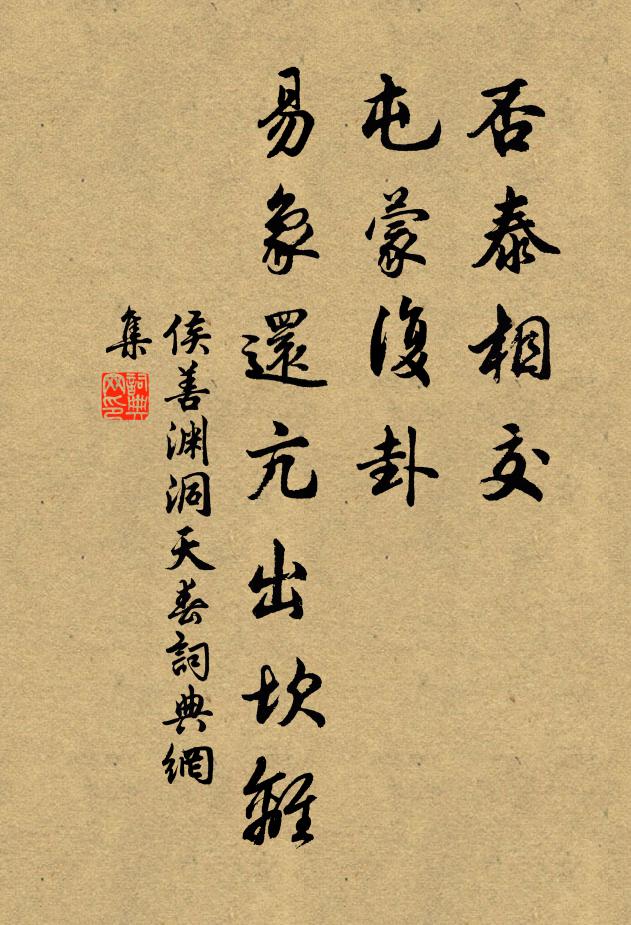 否泰相交
屯蒙復卦
易象還亢出坎離
侯善淵洞天春詞典網
集
詞典網印